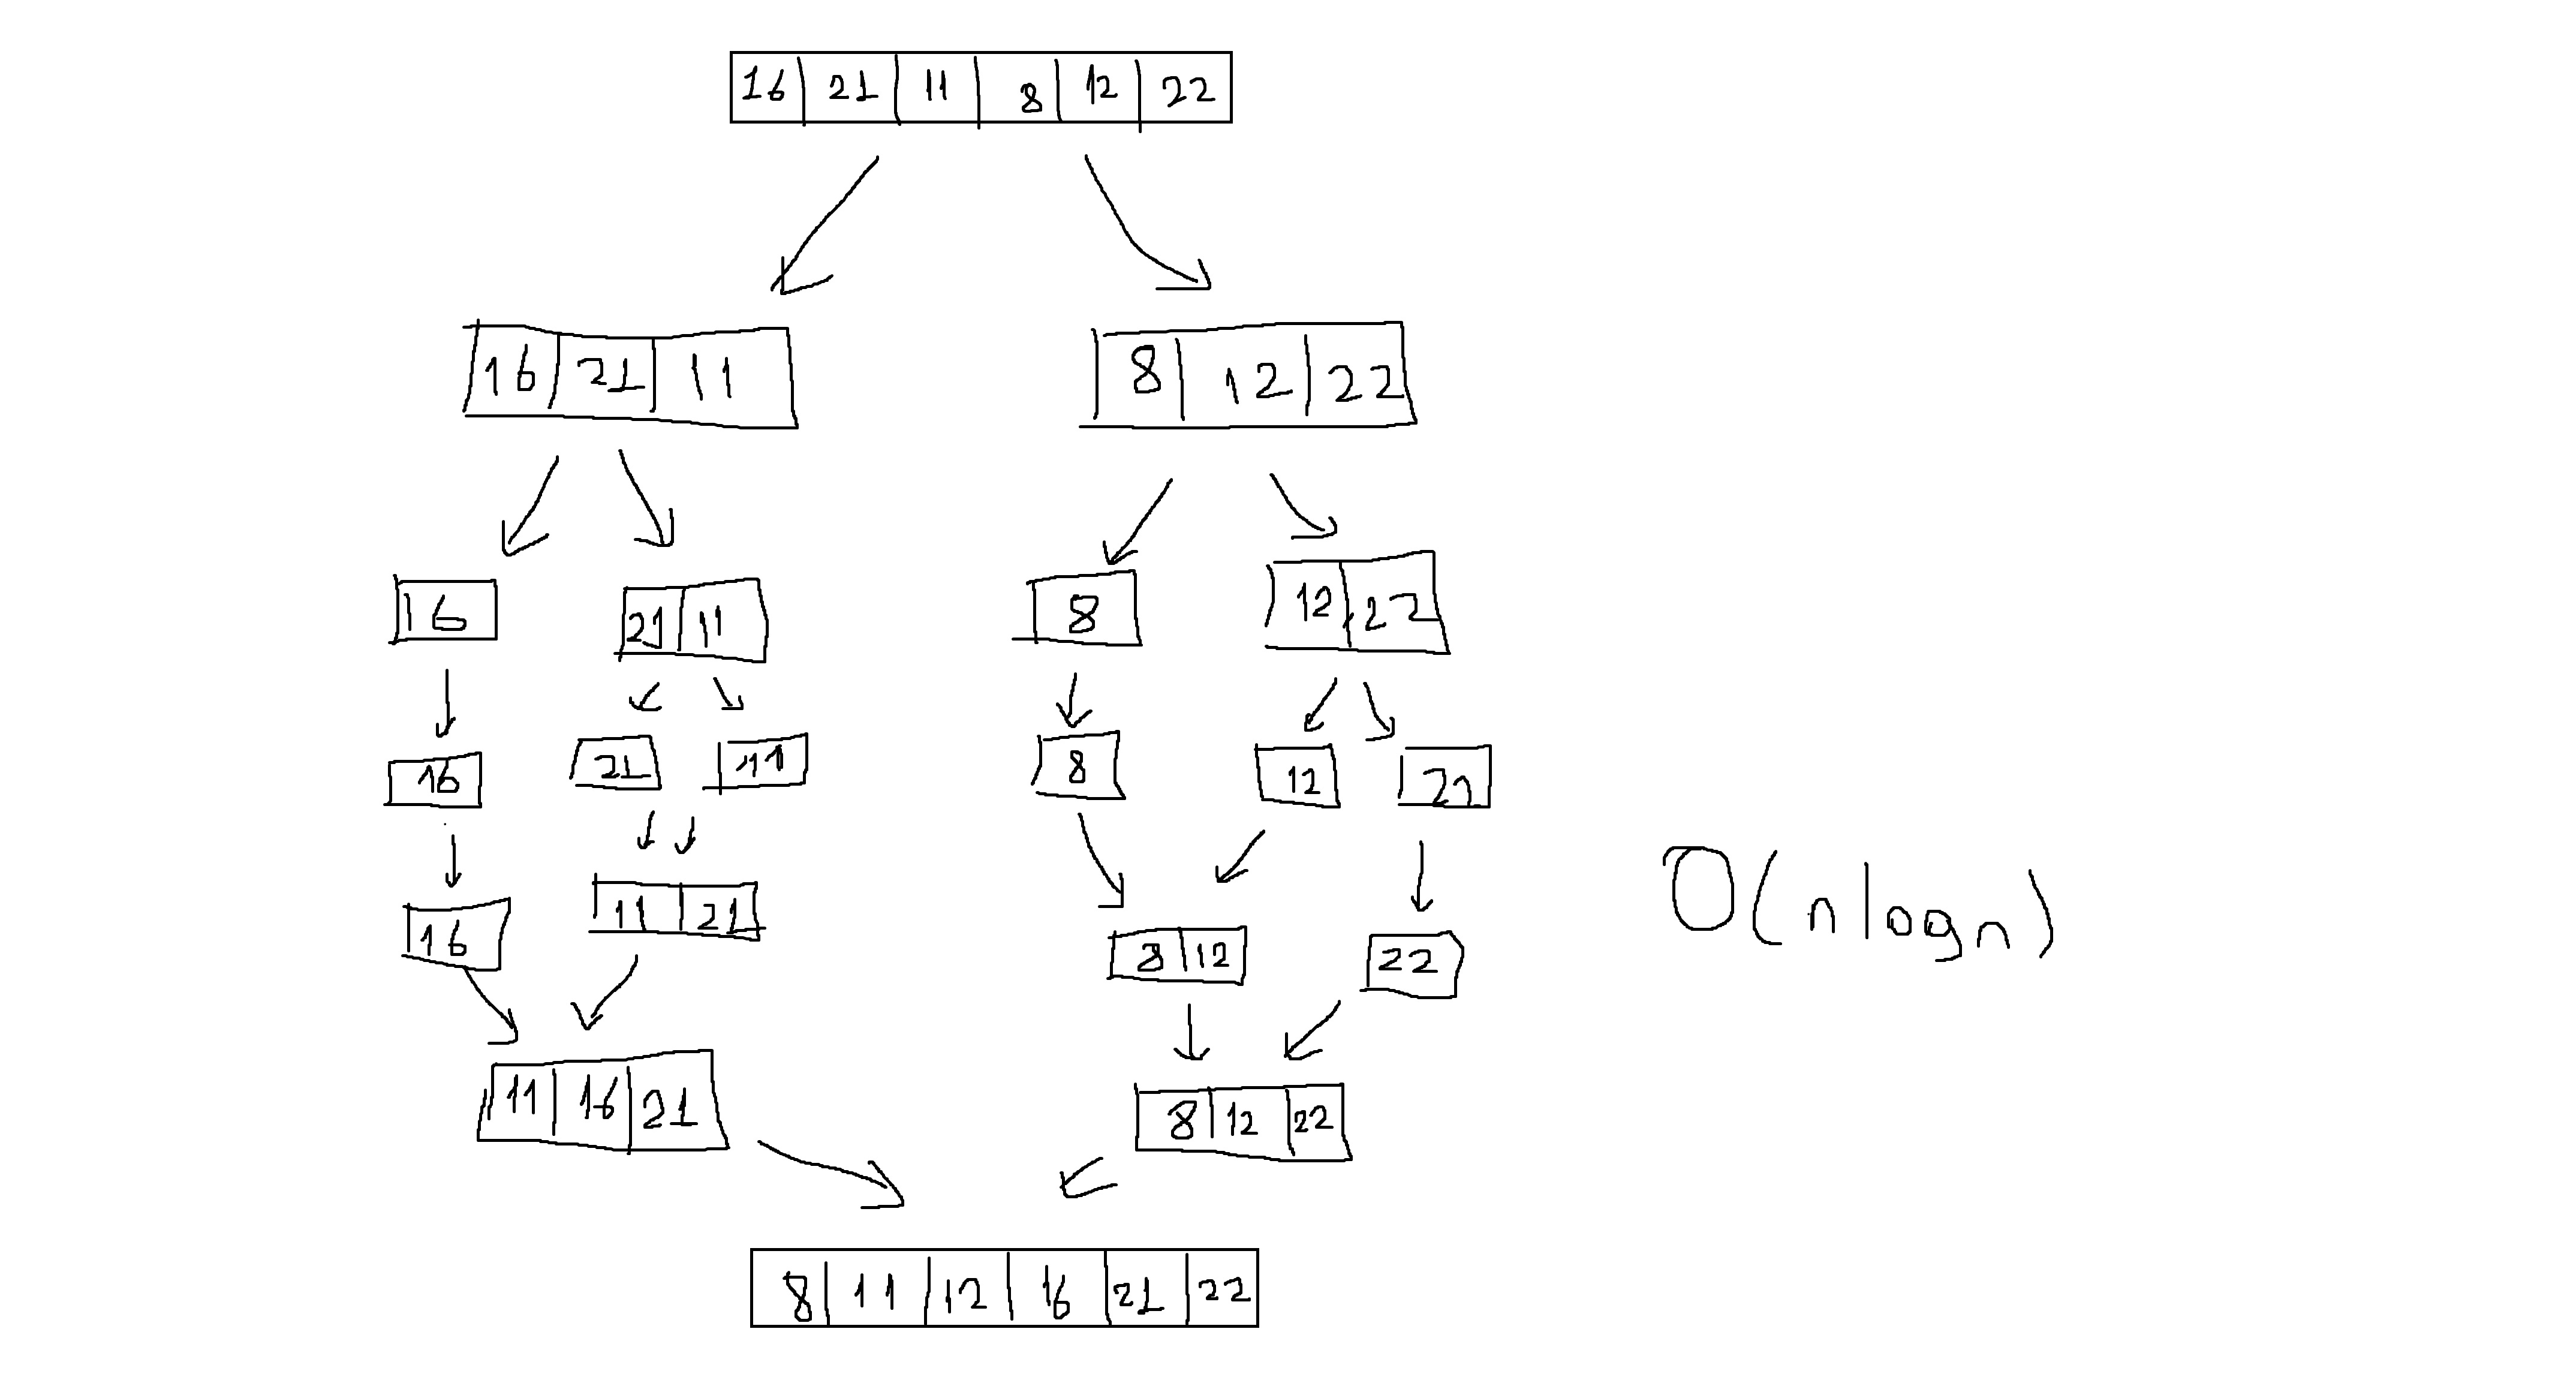 16 21 11 8 12 22
16 21 11 8 12 22
16 21 11 8 12 22
16 21 11 8 12 22
16 11 21 8 12 22
O(nlogn)
11 16 21 8 12 22
8 11 12 16 21 22